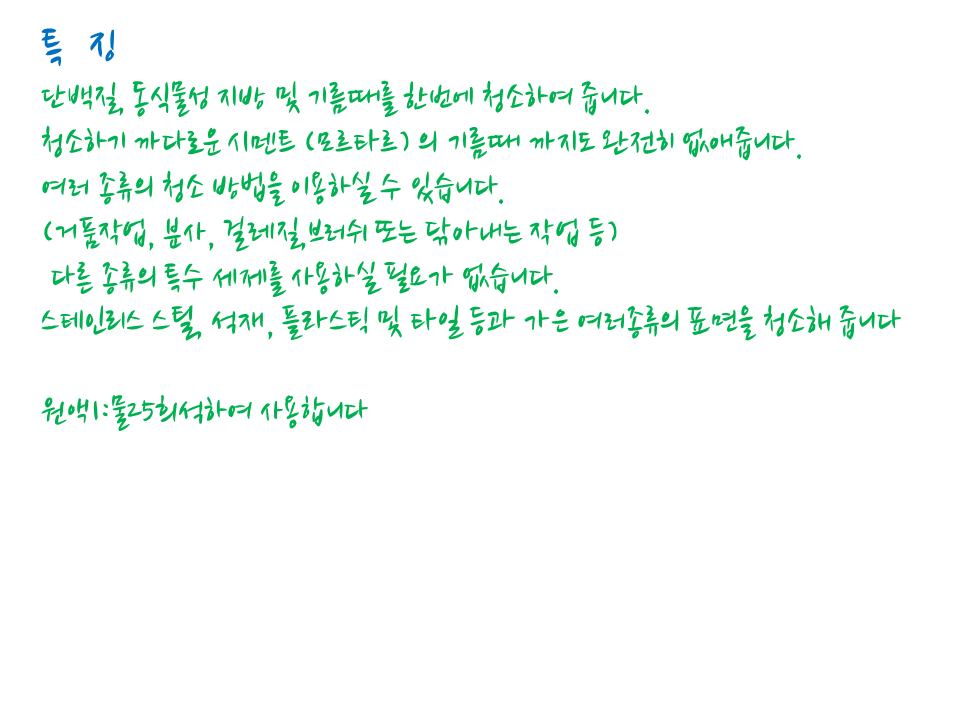 특 징
단백질, 동식물성 지방 및 기름때를 한번에 청소하여 줍니다.
청소하기 까다로운 시멘트 (모르타르) 의 기름때 까지도 완전히 없애줍니다.
여러 종류의 청소 방법을 이용하실 수 있습니다.
(거품작업, 분사, 걸레질,브러쉬 또는 닦아내는 작업 등)
다른 종류의 특수 세제를 사용하실 필요가 없습니다.
스테인리스 스틸, 석재, 플라스틱 및 타일 등과 가은 여러종류의 표면을 청소해 줍니다
원액1:물25희석하여 사용합니다